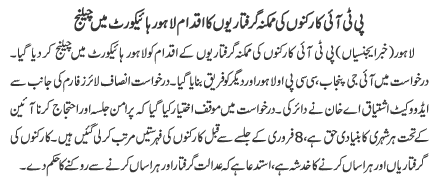 پی ٹی آئی کارکنوں کی ممکنہ گرفتاریوں کا اقدام لاہور ہائیکورٹ میں چیلنج
لاہور (خبر ایجنسیاں) پی ٹی آئی کارکنوں کی ممکنہ گرفتاریوں کے اقدام کو لاہور ہائیکورٹ میں چیلنج کر دیا گیا۔
درخواست میں آئی جی پنجاب، سی سی پی او لاہور اور دیگر کو فریق بنایا گیا۔ درخواست انصاف لائرز فارم کی جانب سے
ایڈووکیٹ اشتیاق اے خان نے دائر کی۔ درخواست میں موقف اختیار کیا گیا کہ پرامن جلسہ اور احتجاج کرنا آئین
کے تحت ہر شہری کا بنیادی حق ہے، 8 فروری کے جلسے سے قبل کارکنوں کی فہرستیں مرتب کر لی گئیں ہیں۔ کارکنوں کی
گرفتاریاں اور ہراساں کرنے کا خدشہ ہے، استدعا ہے کہ عدالت گرفتار اور ہراساں کرنے سے روکنے کا حکم دے۔